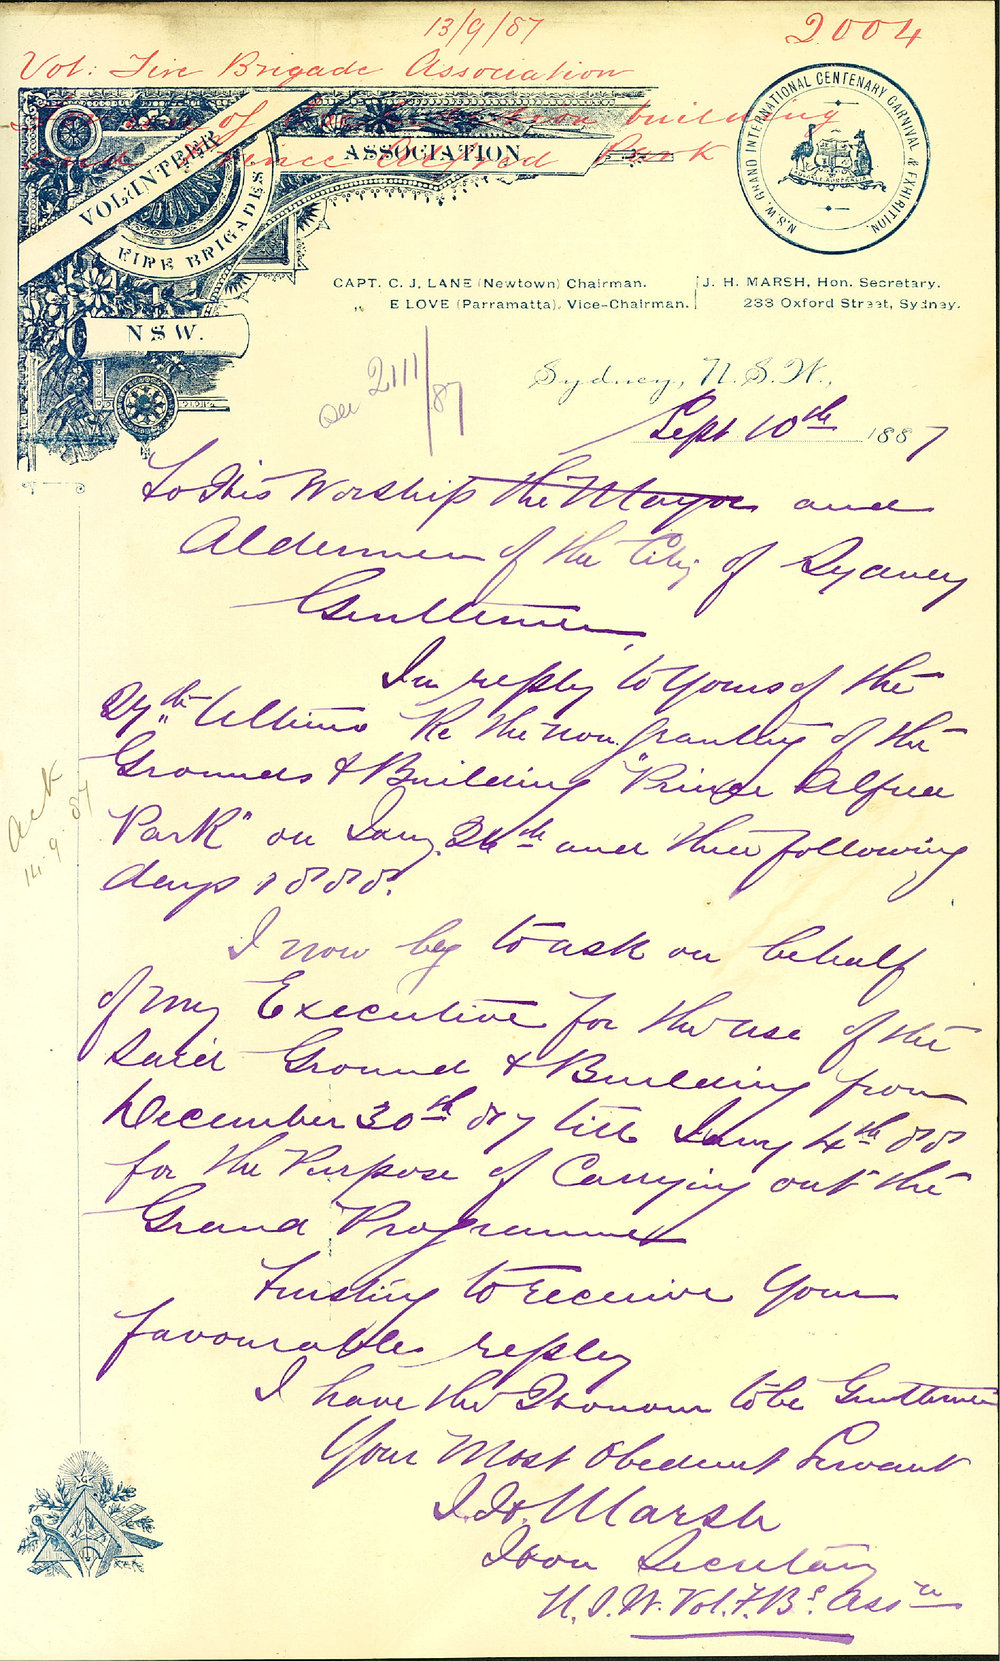 13/9/87
2004
Vol: Fire Brigade Association
for use of Exhibition building
Prince Alfred Park
VOLUNTEER
FIRE BRIGADES
ASSOCIATION
N.S.W.
N.S.W. GRAND INTERNATIONAL CENTENARY CARNIVAL & EXHIBITION.
CAPT. C. J. LANE (Newtown) Chairman.
„ E LOVE (Parramatta). Vice-Chairman.
J. H. MARSH, Hon. Secretary.
233 Oxford Street, Sydney.
2111/87
Sydney, N.S.W.,
Sept 10th 1887
To His Worship the Mayor and
Aldermen of the City of Sydney
Gentlemen,
In reply to yours of the
27th Ultimo Re the non granting of the
Grounds & Building "Prince Alfred
Park" on Jany. 26th and three following
days 1888.
I now beg to ask on behalf
of my Executive for the use of the
Said Ground & Building from
December 30th 87 till Jany 4th 88
for the Purpose of Carrying out the
Grand Programme
Trusting to receive your
favourable reply
I have the Honour to be Gentlemen
Your Most Obedient Servant
J. H. Marsh
Hon Secretary
N.S.W. Vol. F. Bs. Assn
Ack
14.9.87
G